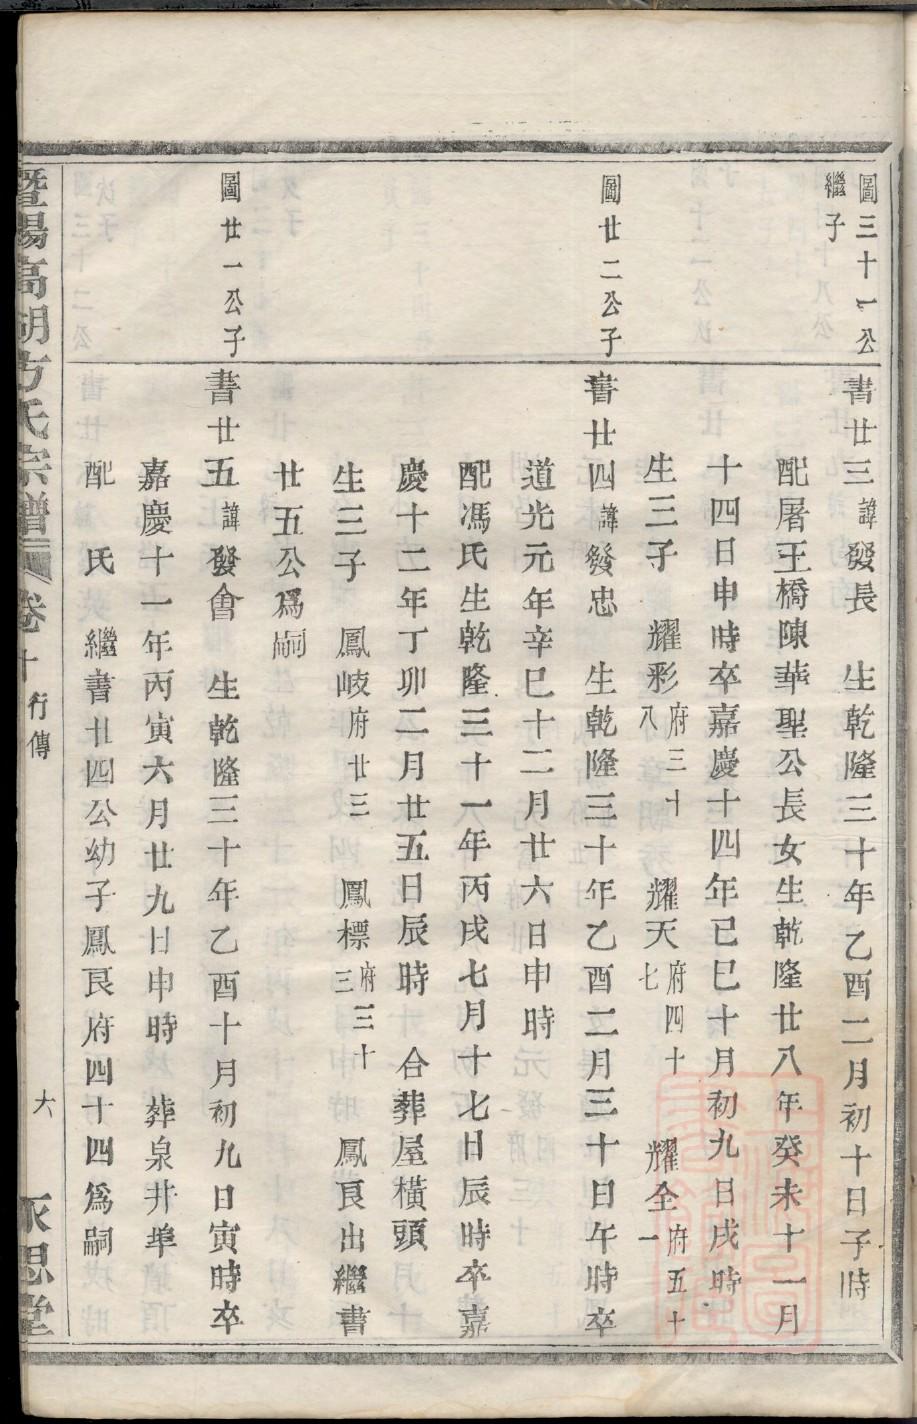 圖三十一公
繼子
書廿三諱發長 生乾隆三十年乙酉二月初十日子時
配屠王橋陳華聖公長女生乾隆廿八年癸未十一月
十四日申時卒嘉慶十四年己巳十月初九日戌時
生三子 耀彩府三十八 耀天府四十七 耀全府五十一
圖廿二公子
書廿四諱發忠 生乾隆三十年乙酉二月三十日午時卒
道光元年辛巳十二月廿六日申時
配馮氏生乾隆三十一年丙戌七月十七日辰時卒嘉
慶十二年丁卯二月廿五日辰時 合葬屋橫頭
生三子 鳳岐府廿三 鳳標府三十三 鳳良出繼書
廿五公爲嗣
圖廿一公子
書廿五諱發會 生乾隆三十年乙酉十月初九日寅時卒
嘉慶十一年丙寅六月廿九日申時 葬泉井埠
配 氏 繼書廿四公幼子鳳良府四十四爲嗣
暨陽高湖方氏宗譜 卷十 行傳 六 永思堂